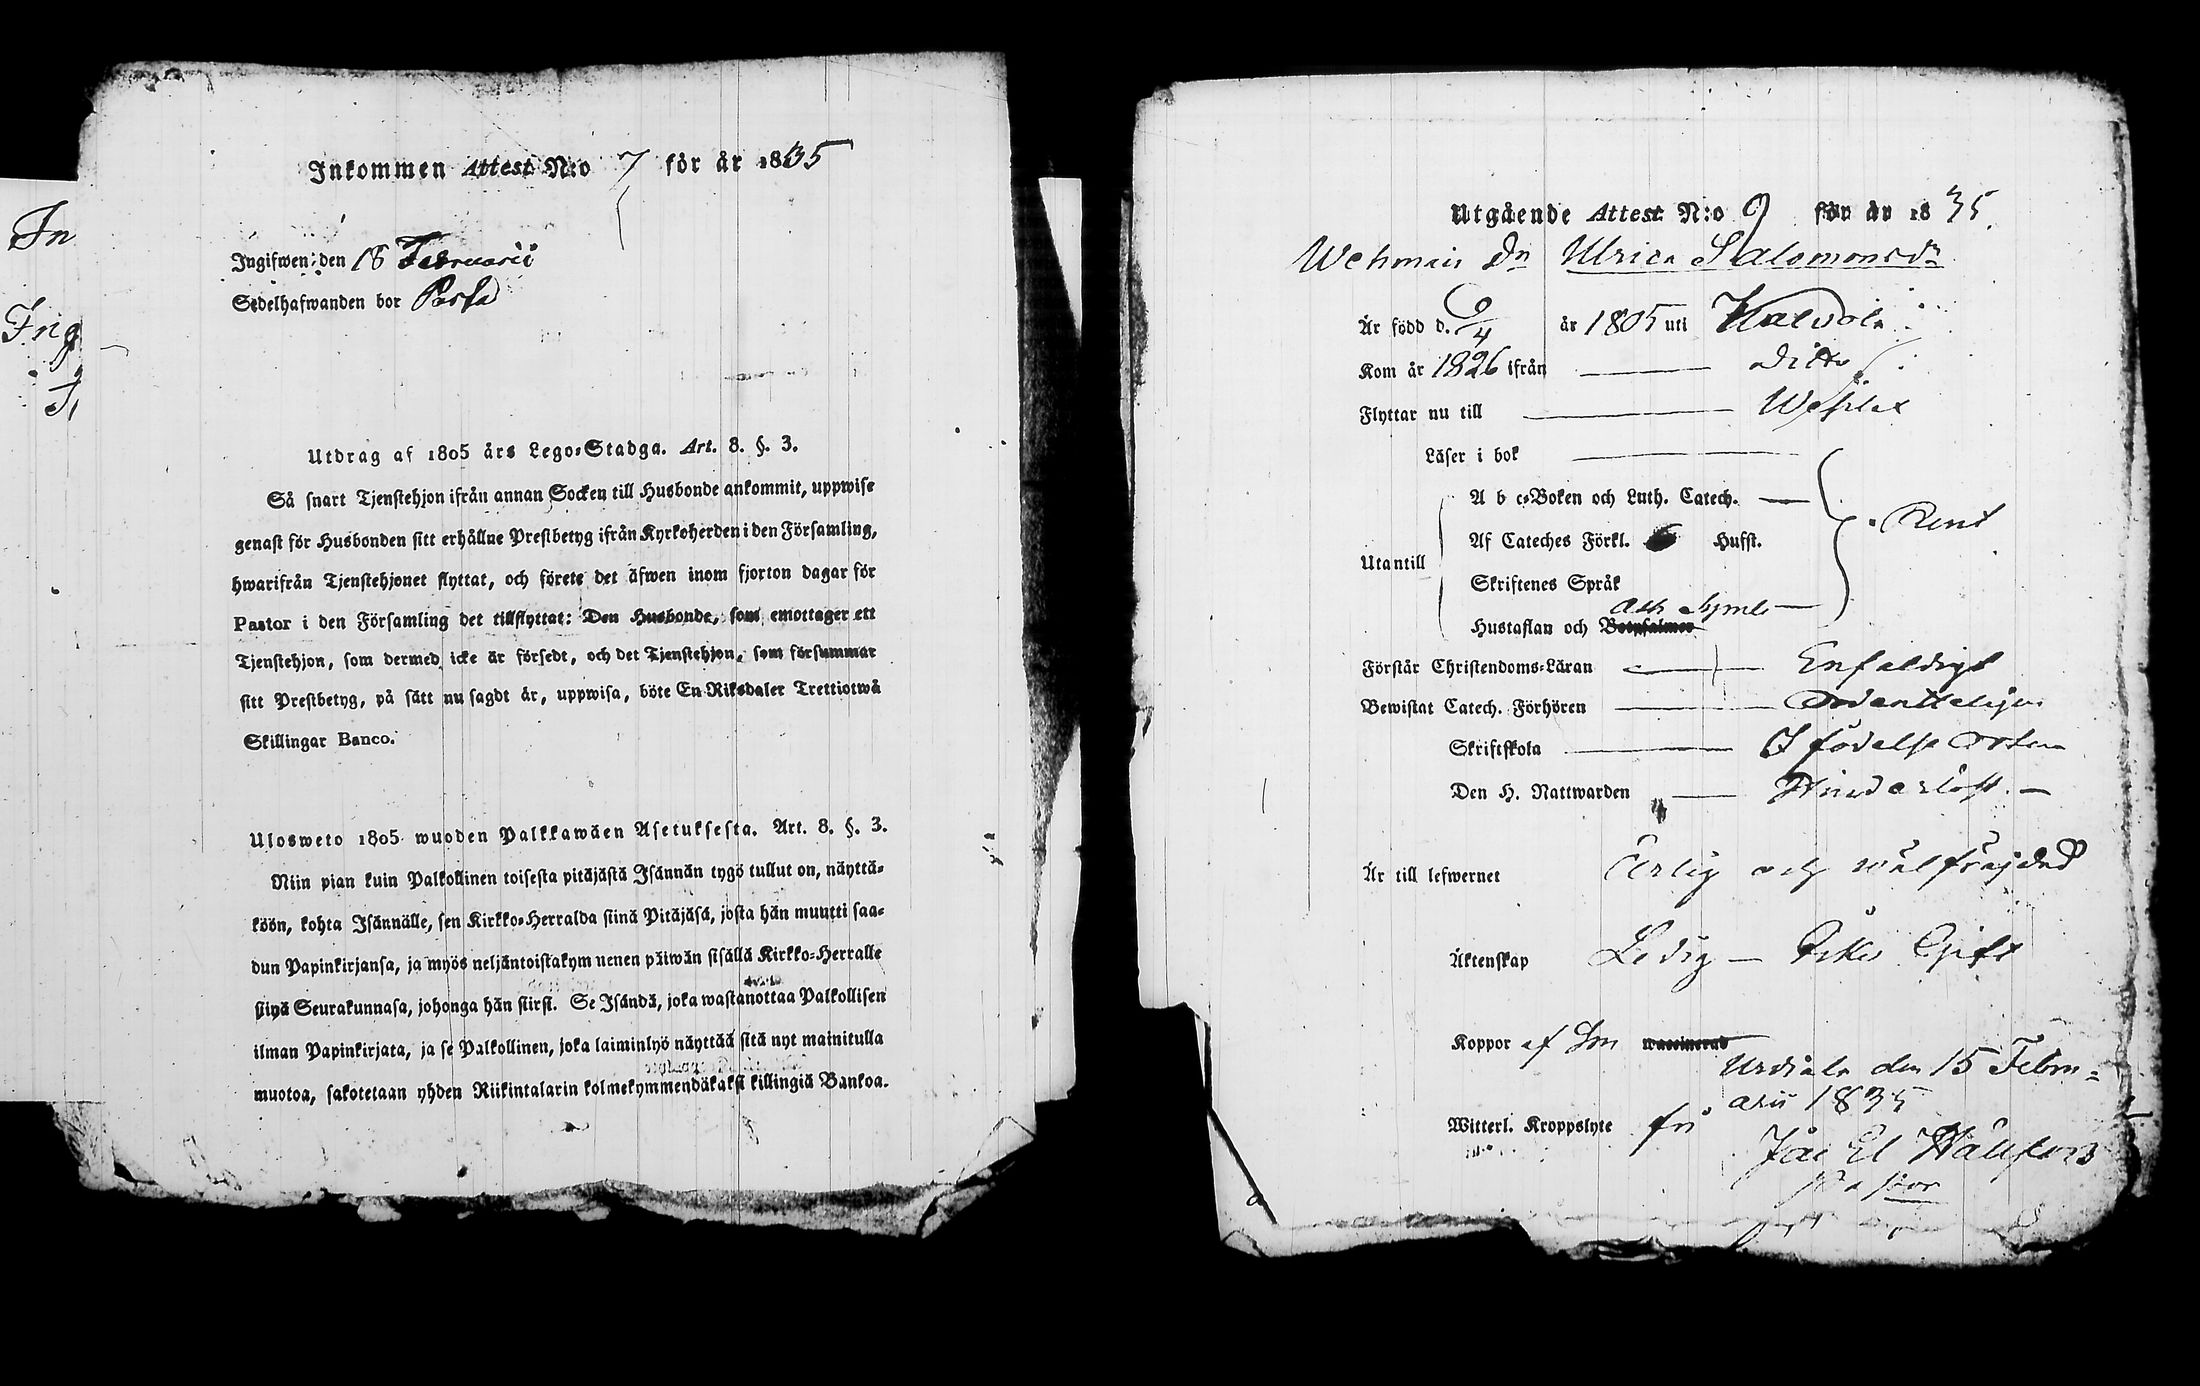 In
Ing
Inkommen Attest N:o 7 för år 1835
Ingifwen den 18 Februarii
Sedelhafwanden bor Passa
Utdrag af 1805 års Lego-Stadga. Art. 8. §. 3.
Så snart Tjenstehjon ifrån annan Socken till Husbonde ankommit, uppwise
genast för Husbonden sitt erhållne Prestbetyg ifrån Kyrkoherden i den Församling,
hwarifrån Tjenstehjonet flyttat, och förete det äfwen inom fjorton dagar för
Pastor i den Församling det tillflyttat: Den Husbonde, som emottager ett
Tjenstehjon, som dermed icke är försedt, och det Tjenstehjon, som försummar
sitt Prestbetyg, på sätt nu sagdt är, uppwisa, böte En Riksdaler Trettiotwå
Skillingar Banco.
Ulosweto 1805 wuoden Palkkawäen Asetuksesta. Art. 8. §. 3.
Niin pian kuin Palkollinen toisesta pitäjästä Isännän tygö tullut on, näyttä-
köön, kohta Isännälle, sen Kirkko-Herralda siinä Pitäjäsä, josta hän muutti saa-
dun Papinkirjansa, ja myös neljäntoistakymmenen päiwän sisällä Kirkko-Herralle
siinä Seurakunnasa, johonga hän siirsi. Se Isändä, joka wastanottaa Palkollisen
ilman Papinkirjata, ja se Palkollinen, joka laiminlyö näyttää sitä nyt mainitulla
muotoa, sakotetaan yhden Riikintalarin kolmekymmendäkaksi killingiä Bankoa.
Utgående Attest N:o 9 för år 1835.
Wehmais Dn Ulrica Salomonsdr
Är född d. 9/4 år 1805 uti Kalvola
Kom år 1826 ifrån — ditto
Flyttar nu till — Wesilax
Läser i bok —
A b c-Boken och Luth. Catech. —
Rent
Af Cateches Förkl. Husst.
Utantill
Skriftenes Språk
Ath Symb —
Hustaflan och Botpsalmer
Förstår Christendoms-Läran — Enfaldigt
Bewistat Catech. Förhören — Ordenteligen
Skriftskola — I födelse Orten
Den H. Nattwarden — Hinderlöst. —
Är till lefwernet Ärlig och wälfräjdad
Äktenskap Ledig — Icke Gift
Koppor af Son waccinerad
Urdiala den 15 Febru-
arii 1835
Witterl. Kroppslyte fri
Pastor